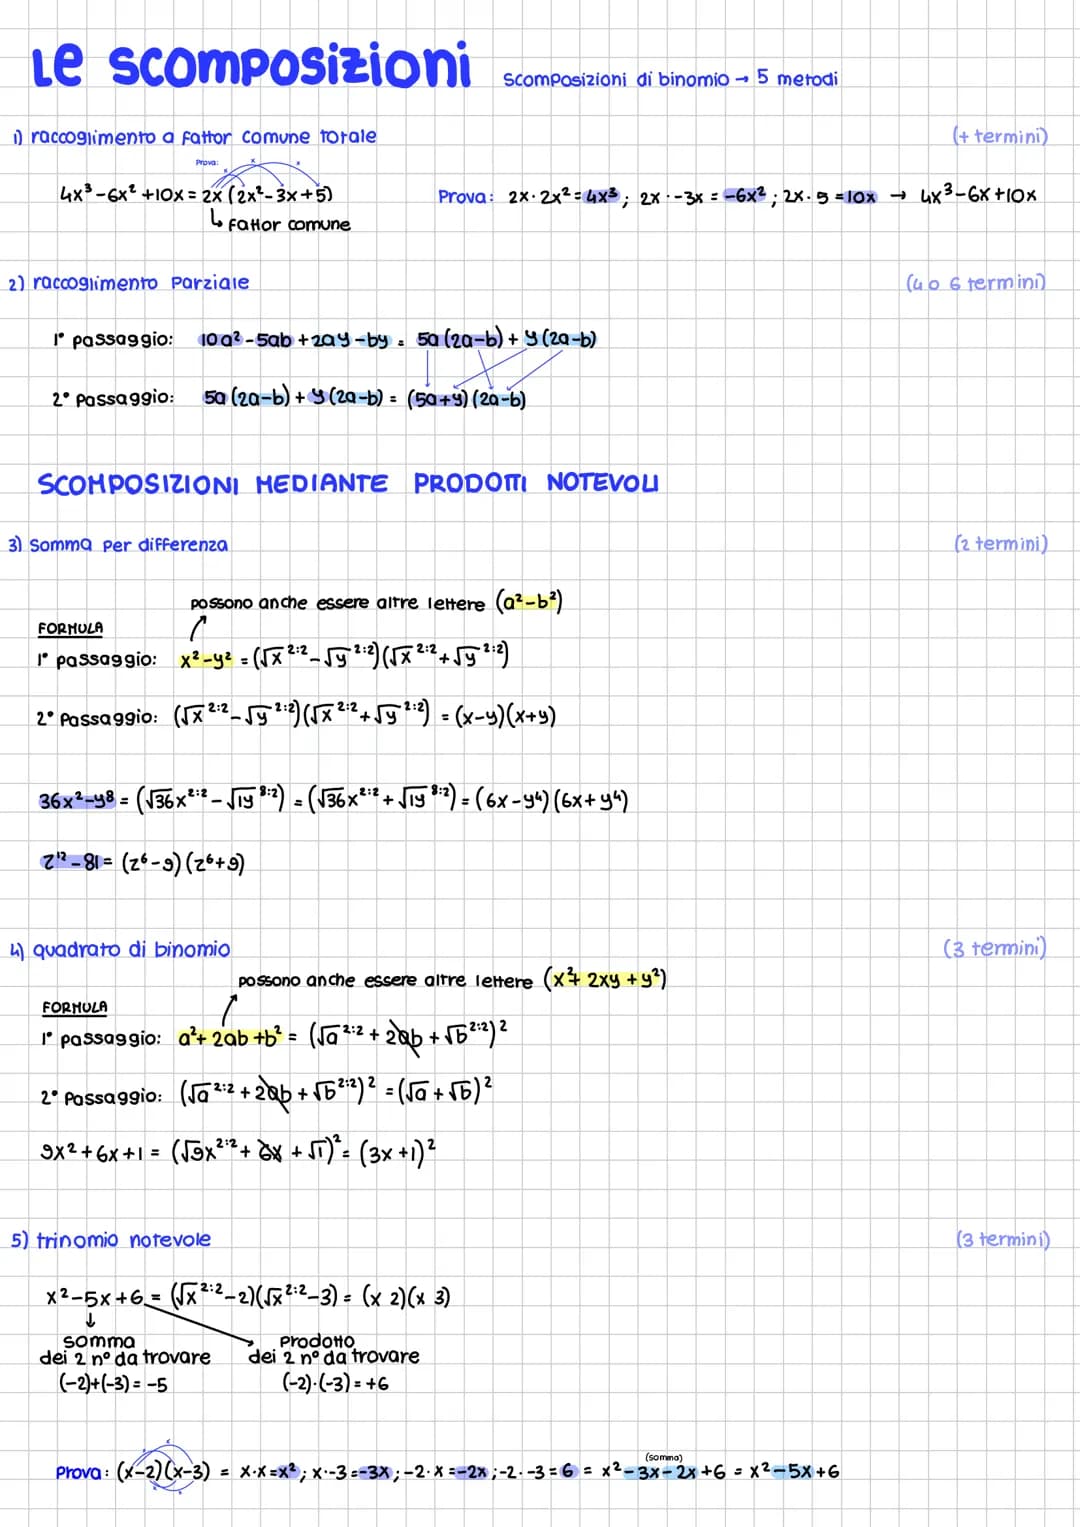 Le scomposizioni
Scomposizioni di binomio → 5 metodi
1) raccoglimento a fattor comune totale (+ termini)
Prova:
4x³-6x²+10x = 2x(2x²-3x+5)
↳ fattor comune
Prova: 2x·2x²=4x³; 2x·-3x=-6x²; 2x·5=10x → 4x³-6x+10x
2) raccoglimento parziale (4 o 6 termini)
1° passaggio: 10a²-5ab+2ay-by = 5a(2a-b)+y(2a-b)
2° passaggio: 5a(2a-b)+y(2a-b) = (5a+y)(2a-b)
SCOMPOSIZIONI MEDIANTE PRODOTTI NOTEVOLI
3) somma per differenza (2 termini)
possono anche essere altre lettere (a²-b²)
FORMULA
1° passaggio: x²-y² = (√x²:²-√y²:²)(√x²:²+√y²:²)
2° passaggio: (√x²:²-√y²:²)(√x²:²+√y²:²) = (x-y)(x+y)
36x²-y⁸ = (√36x²:²-√1y⁸:²) = (√36x²:²+√1y⁸:²) = (6x-y⁴)(6x+y⁴)
z¹²-81 = (z⁶-9)(z⁶+9)
4) quadrato di binomio (3 termini)
possono anche essere altre lettere (x²+2xy+y²)
FORMULA
1° passaggio: a²+2ab+b² = (√a²:²+2ab+√b²:²)²
2° passaggio: (√a²:²+2ab+√b²:²)² = (√a+√b)²
9x²+6x+1 = (√9x²:²+6x+√1)² = (3x+1)²
5) trinomio notevole (3 termini)
x²-5x+6 = (√x²:²-2)(√x²:²-3) = (x 2)(x 3)
↓
somma
dei 2 n° da trovare
(-2)+(-3) = -5
prodotto
dei 2 n° da trovare
(-2)·(-3) = +6
(somma)
Prova: (x-2)(x-3) = x·x=x²; x·-3=-3x; -2·x=-2x; -2·-3=6 = x²-3x-2x+6 = x²-5x+6